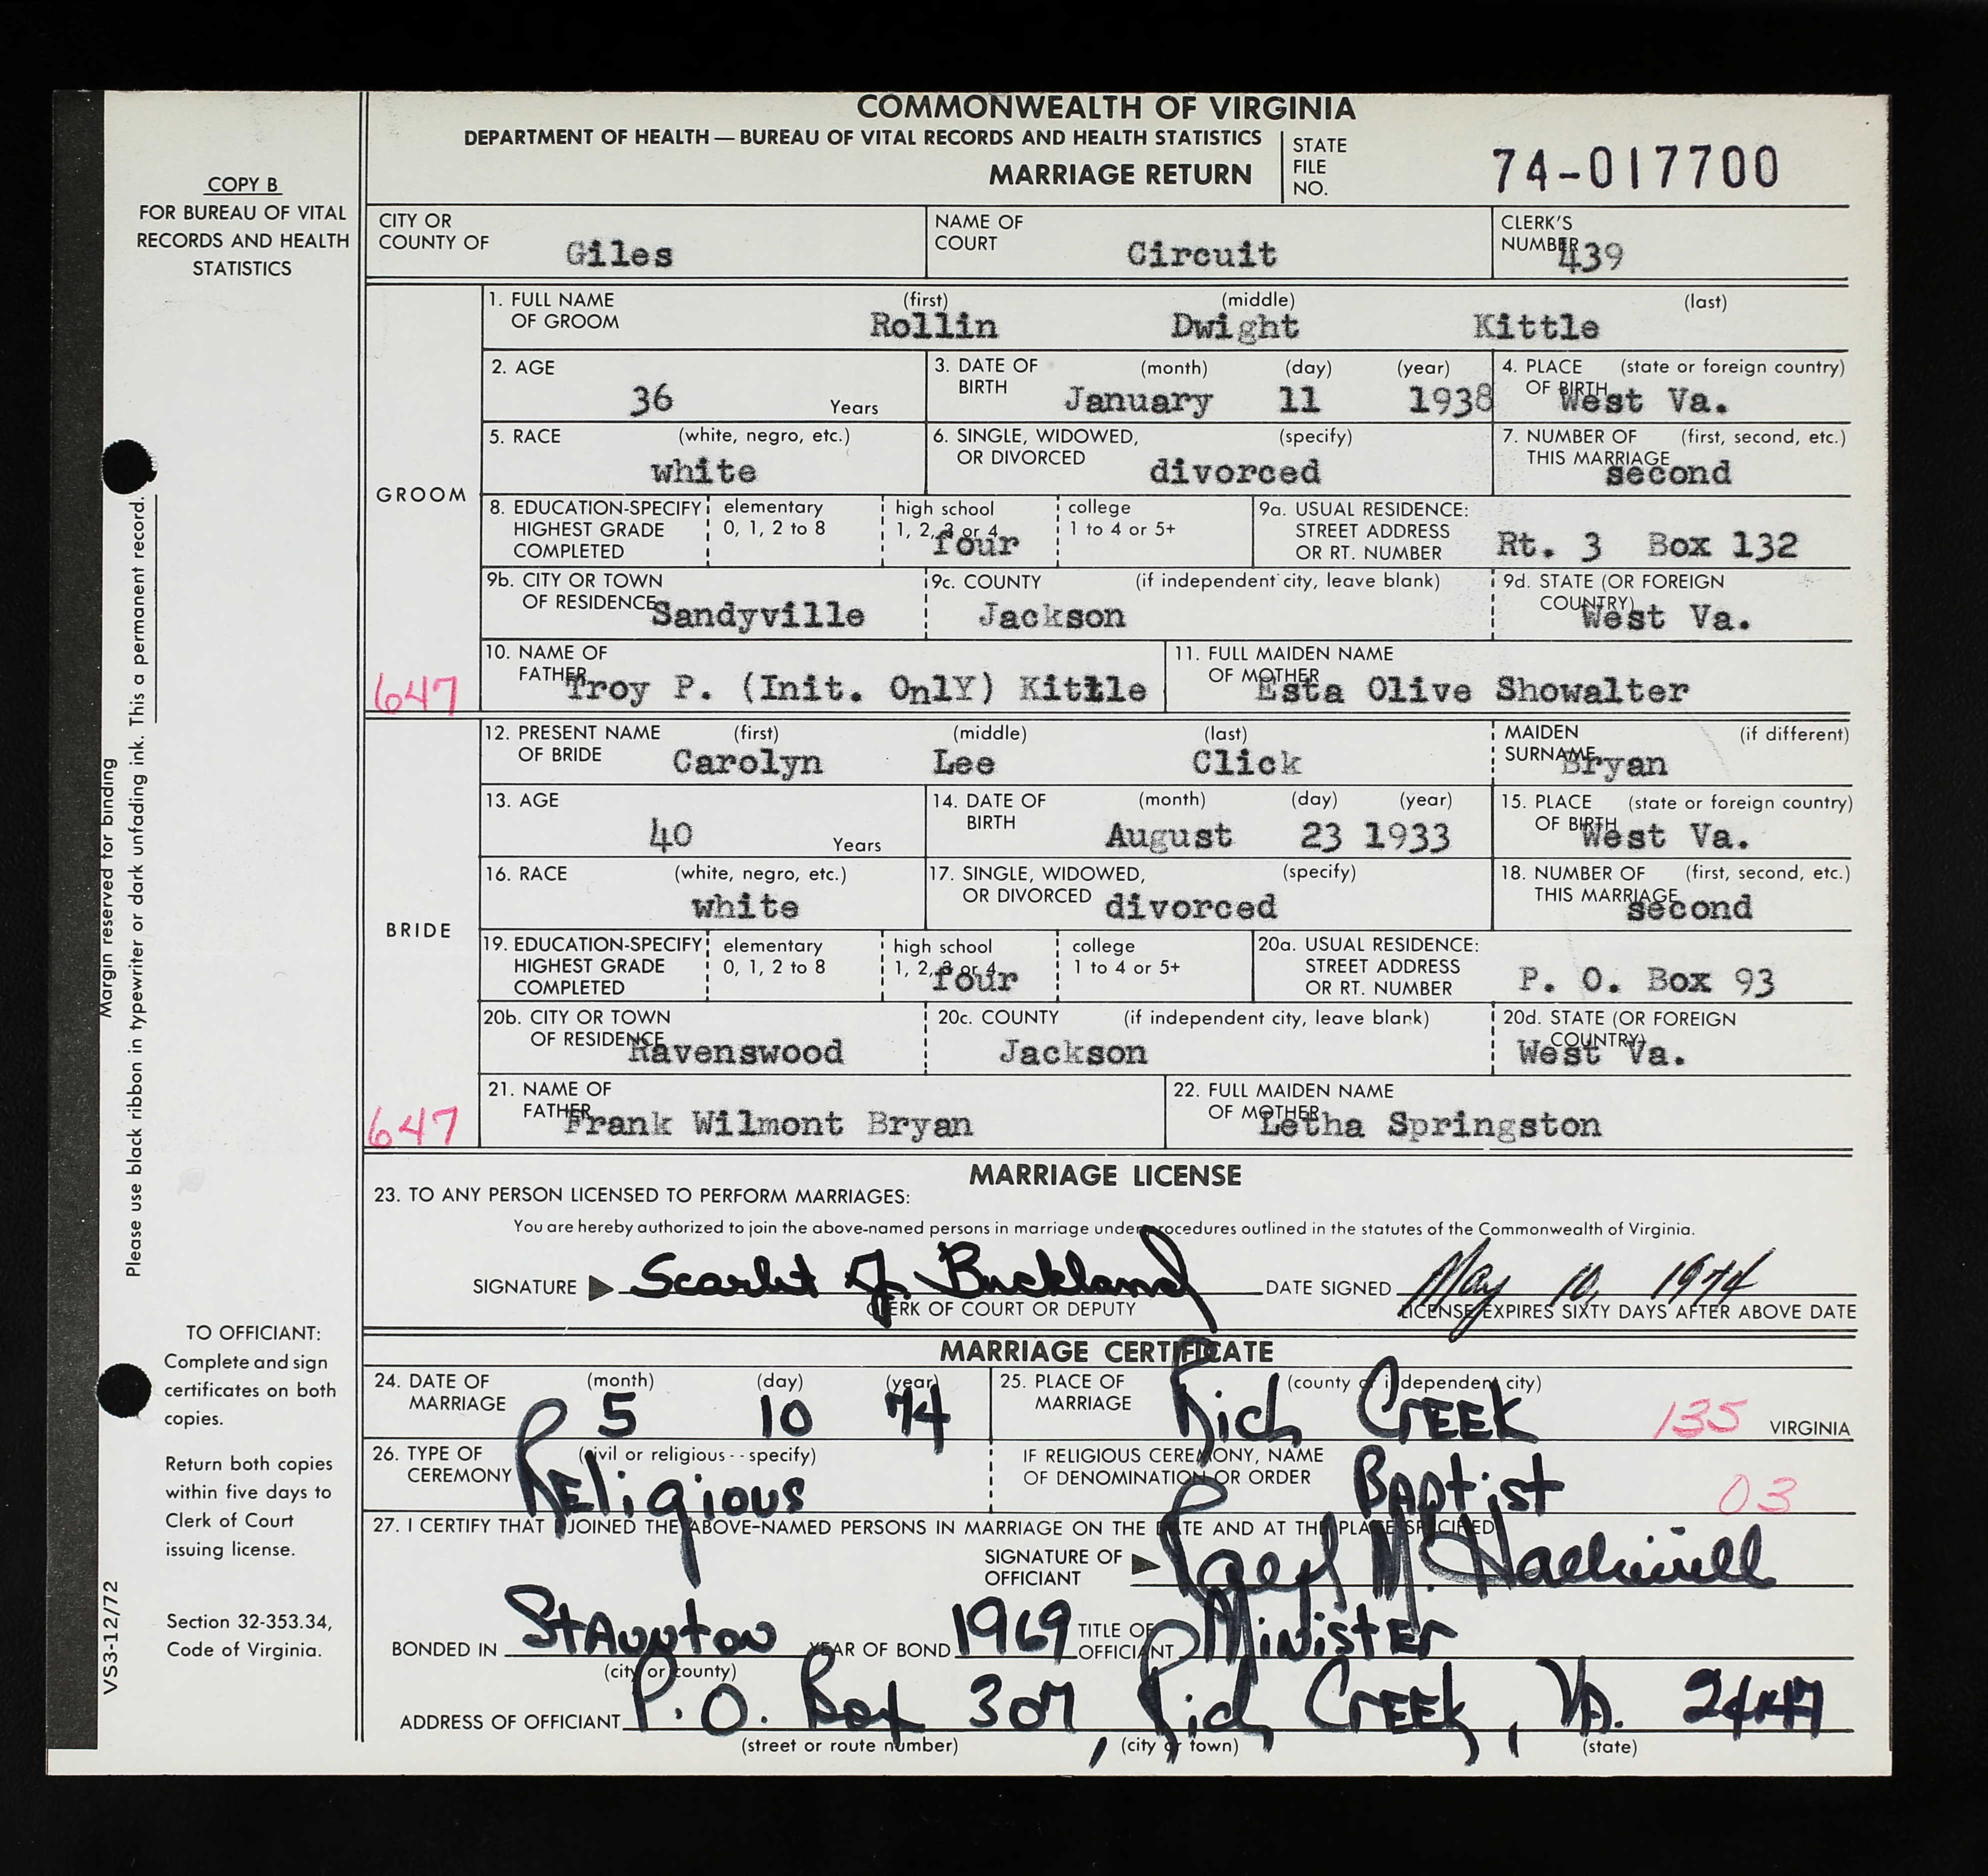 COMMONWEALTH OF VIRGINIA
DEPARTMENT OF HEALTH — BUREAU OF VITAL RECORDS AND HEALTH STATISTICS
MARRIAGE RETURN
STATE FILE NO. 74-017700
COPY B
FOR BUREAU OF VITAL
RECORDS AND HEALTH
STATISTICS
CITY OR COUNTY OF Giles NAME OF COURT Circuit CLERK'S NUMBER 439
GROOM
1. FULL NAME OF GROOM (first) Rollin (middle) Dwight (last) Kittle
2. AGE 36 Years 3. DATE OF BIRTH (month) January (day) 11 (year) 1938 4. PLACE OF BIRTH (state or foreign country) West Va.
5. RACE (white, negro, etc.) white 6. SINGLE, WIDOWED, OR DIVORCED (specify) divorced 7. NUMBER OF THIS MARRIAGE (first, second, etc.) second
8. EDUCATION-SPECIFY HIGHEST GRADE COMPLETED elementary 0, 1, 2 to 8 high school 1, 2, 3 or 4 four college 1 to 4 or 5+ 9a. USUAL RESIDENCE: STREET ADDRESS OR RT. NUMBER Rt. 3 Box 132
9b. CITY OR TOWN OF RESIDENCE Sandyville 9c. COUNTY (if independent city, leave blank) Jackson 9d. STATE (OR FOREIGN COUNTRY) West Va.
10. NAME OF FATHER Troy P. (Init. OnlY) Kittle 11. FULL MAIDEN NAME OF MOTHER Esta Olive Showalter
647
BRIDE
12. PRESENT NAME OF BRIDE (first) Carolyn (middle) Lee (last) Click MAIDEN SURNAME (if different) Bryan
13. AGE 40 Years 14. DATE OF BIRTH (month) August (day) 23 (year) 1933 15. PLACE OF BIRTH (state or foreign country) West Va.
16. RACE (white, negro, etc.) white 17. SINGLE, WIDOWED, OR DIVORCED (specify) divorced 18. NUMBER OF THIS MARRIAGE (first, second, etc.) second
19. EDUCATION-SPECIFY HIGHEST GRADE COMPLETED elementary 0, 1, 2 to 8 high school 1, 2, 3 or 4 four college 1 to 4 or 5+ 20a. USUAL RESIDENCE: STREET ADDRESS OR RT. NUMBER P. O. Box 93
20b. CITY OR TOWN OF RESIDENCE Ravenswood 20c. COUNTY (if independent city, leave blank) Jackson 20d. STATE (OR FOREIGN COUNTRY) West Va.
21. NAME OF FATHER Frank Wilmont Bryan 22. FULL MAIDEN NAME OF MOTHER Letha Springston
647
MARRIAGE LICENSE
23. TO ANY PERSON LICENSED TO PERFORM MARRIAGES:
You are hereby authorized to join the above-named persons in marriage under procedures outlined in the statutes of the Commonwealth of Virginia.
SIGNATURE Scarlet J. Buckland DATE SIGNED May 10, 1974
CLERK OF COURT OR DEPUTY LICENSE EXPIRES SIXTY DAYS AFTER ABOVE DATE
MARRIAGE CERTIFICATE
24. DATE OF MARRIAGE (month) 5 (day) 10 (year) 74 25. PLACE OF MARRIAGE (county or independent city) Rich Creek 135 VIRGINIA
26. TYPE OF CEREMONY (civil or religious -- specify) Religious IF RELIGIOUS CEREMONY, NAME OF DENOMINATION OR ORDER Baptist 03
27. I CERTIFY THAT I JOINED THE ABOVE-NAMED PERSONS IN MARRIAGE ON THE DATE AND AT THE PLACE SPECIFIED
SIGNATURE OF OFFICIANT M.
BONDED IN Staunton YEAR OF BOND 1969 TITLE OF OFFICIANT Minister
(city or county)
ADDRESS OF OFFICIANT P.O. Box 307, Rich Creek, Va.
(street or route number) (city or town) (state)
Margin reserved for binding
Please use black ribbon in typewriter or dark unfading ink. This a permanent record.
TO OFFICIANT:
Complete and sign
certificates on both
copies.
Return both copies
within five days to
Clerk of Court
issuing license.
Section 32-353.34,
Code of Virginia.
VS3-12/72